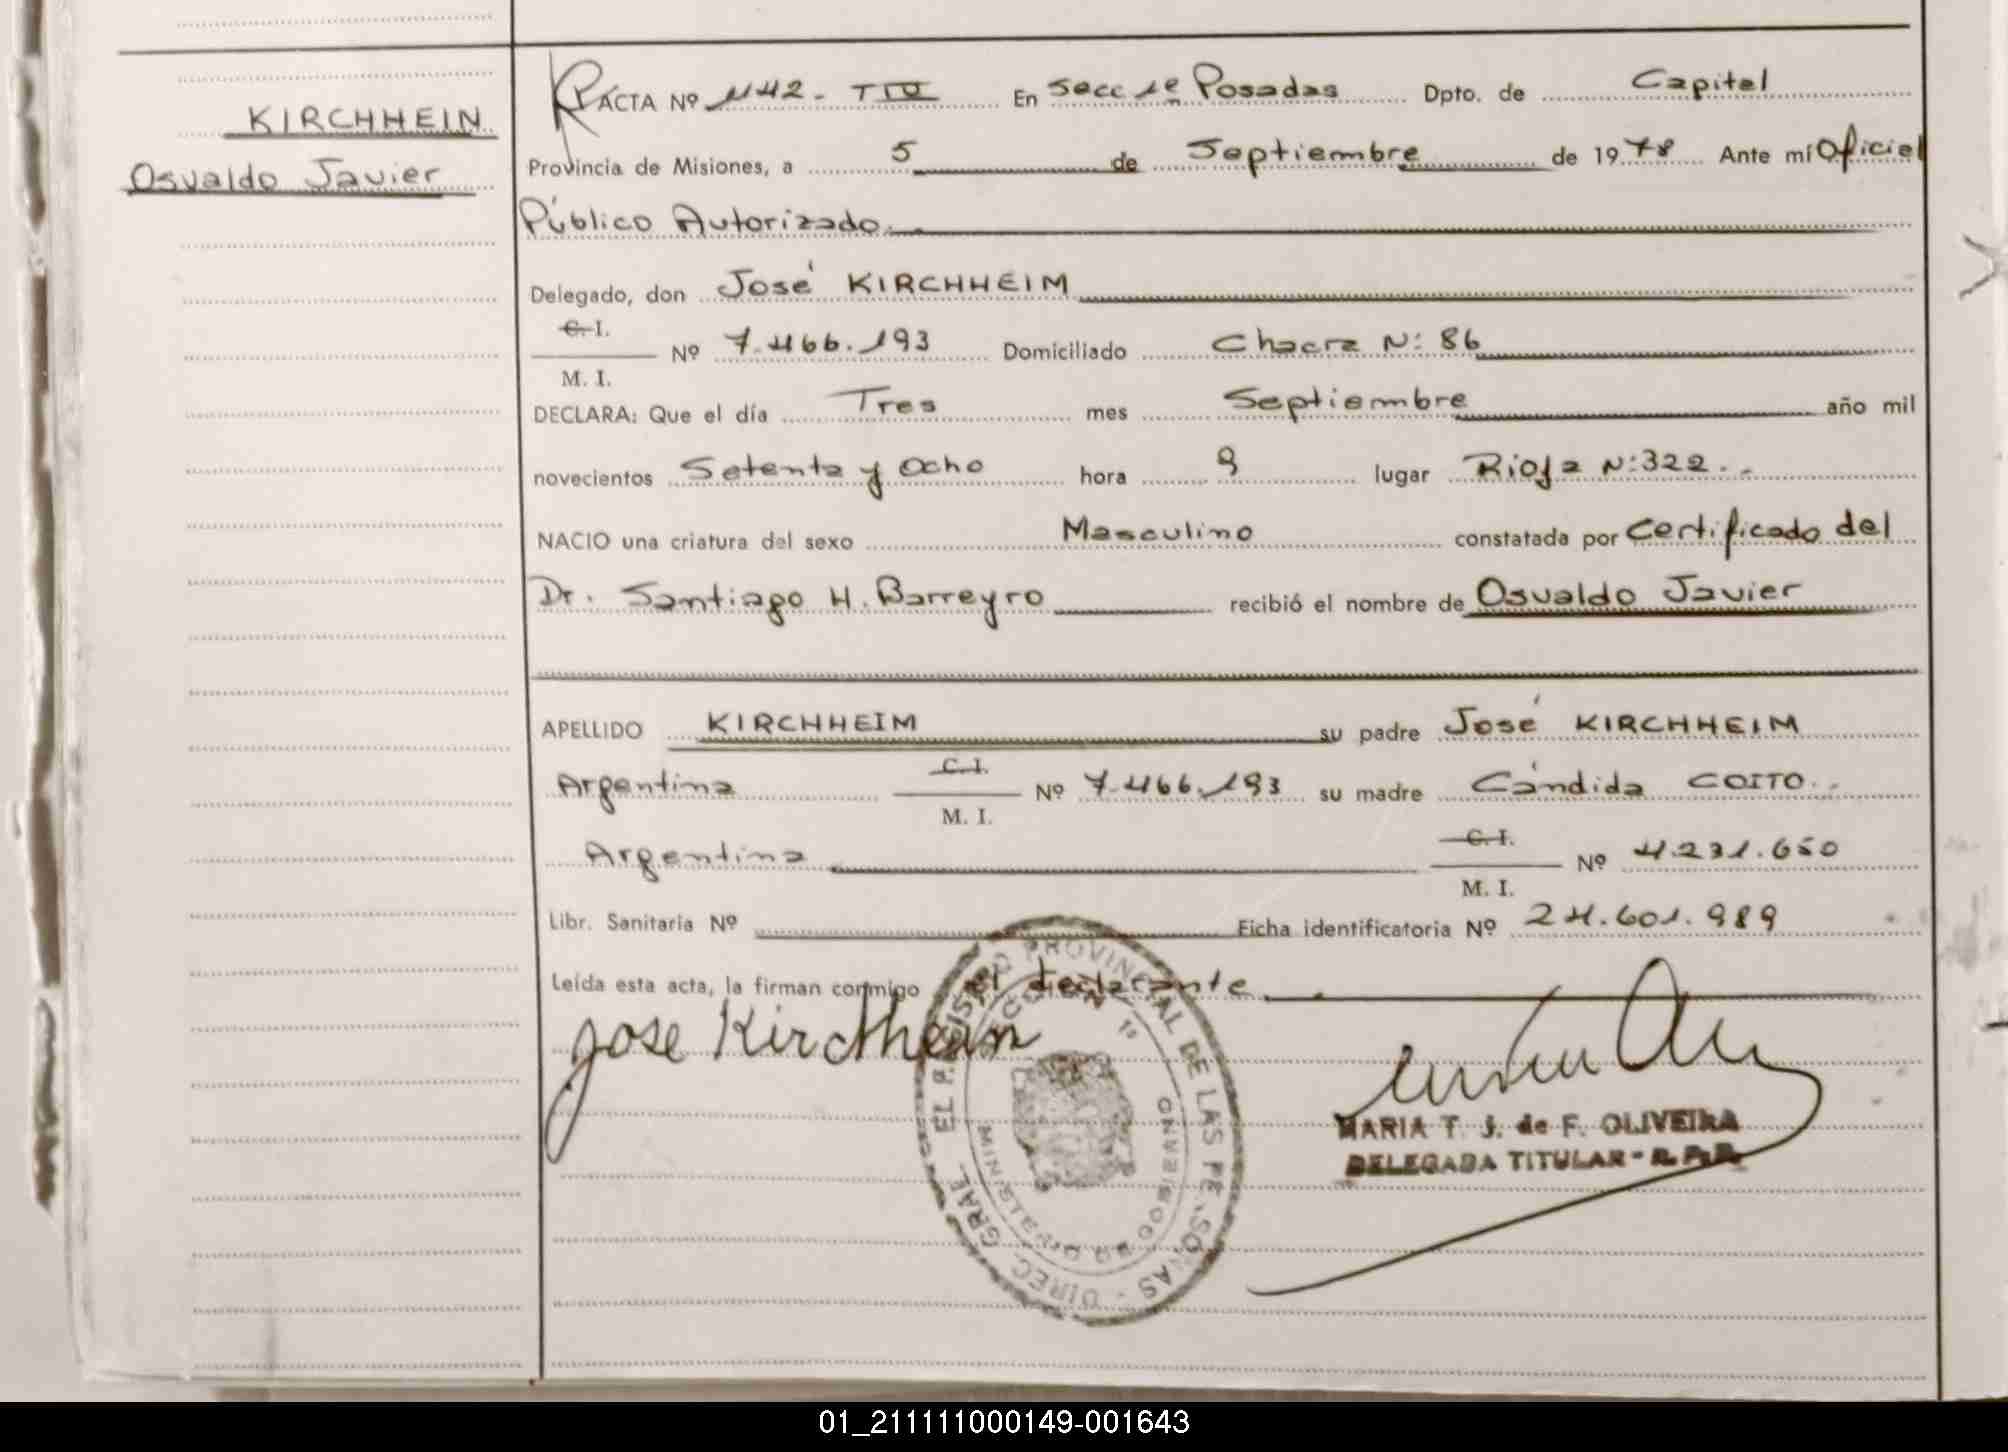 KIRCHHEIN
Osvaldo Javier
ACTA Nº 1142 - TIV En Secc 1e Posadas Dpto. de Capital
Provincia de Misiones, a 5 de Septiembre de 1978 Ante mí Oficial
Público Autorizado.
Delegado, don José KIRCHHEIM
C. I.
M. I. Nº 7.466.193 Domiciliado Chacra N: 86
DECLARA: Que el día Tres mes Septiembre año mil
novecientos Setenta y Ocho hora 9 lugar Rioja N:322.-
NACIO una criatura del sexo Masculino constatada por Certificado del
Dr. Santiago H. Barreyro recibió el nombre de Osvaldo Javier
APELLIDO KIRCHHEIM su padre José KIRCHHEIM
Argentina C. I. M. I. Nº 7.466.193 su madre Cándida COITO.-
Argentina C. I. M. I. Nº 4.231.650
Libr. Sanitaria Nº Ficha identificatoria Nº 24.601.989
Leída esta acta, la firman conmigo el declarante
jose Kirchheim
MARIA T. J. de F. OLIVEIRA
DELEGADA TITULAR - R. P. P.
DIREC. GRAL. EL REGISTRO PROVINCIAL DE LAS PERSONAS
MINISTERIO DE GOBIERNO
01_211111000149-001643